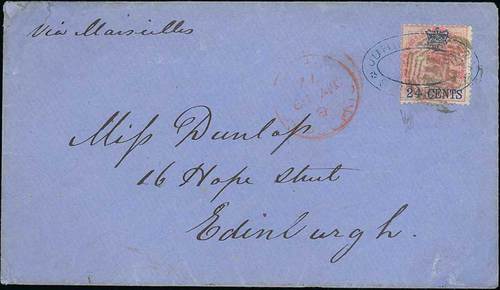 Via Marseilles
24 CENTS
Miss Dunlop
16 Hope Street
Edinburgh.